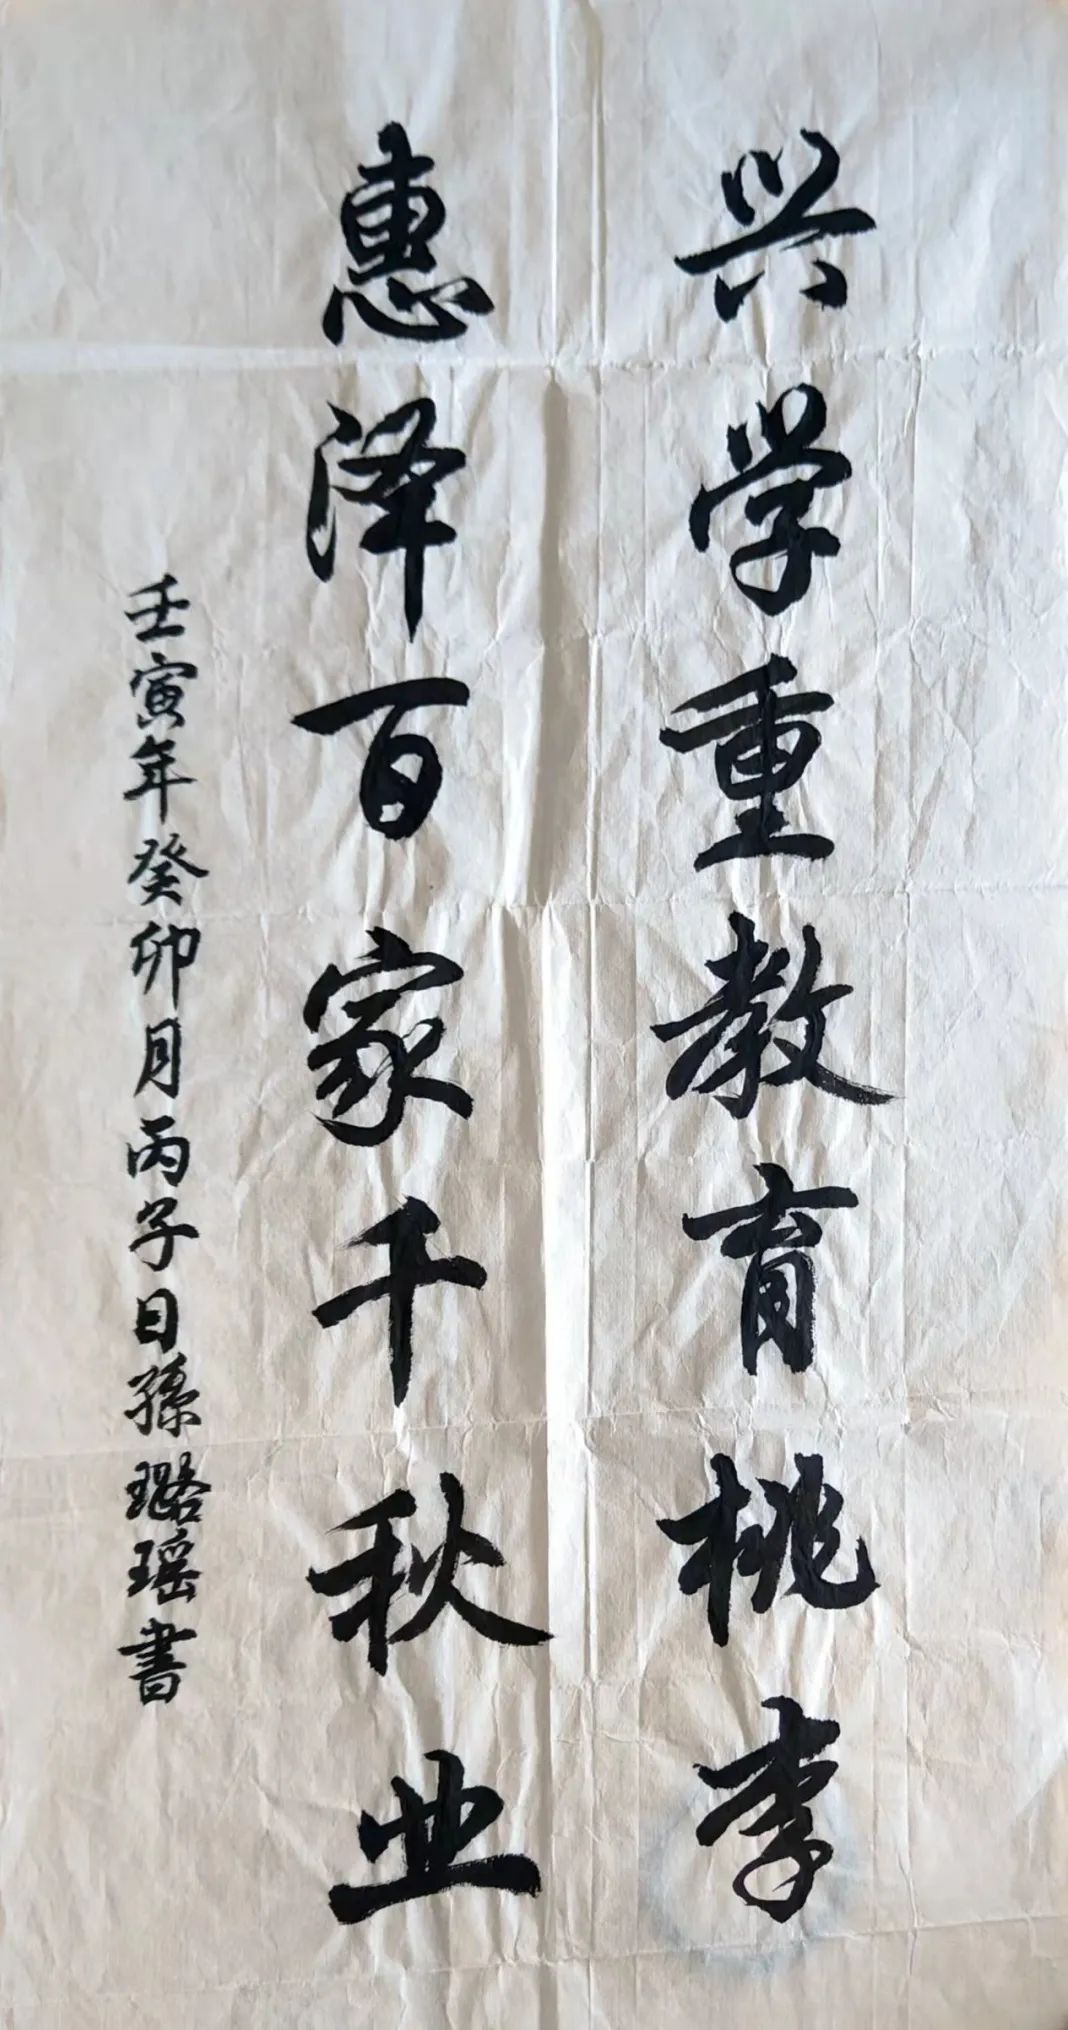 兴学重教育桃李
惠泽百家千秋业
壬寅年癸卯月丙子日孫璐瑶書